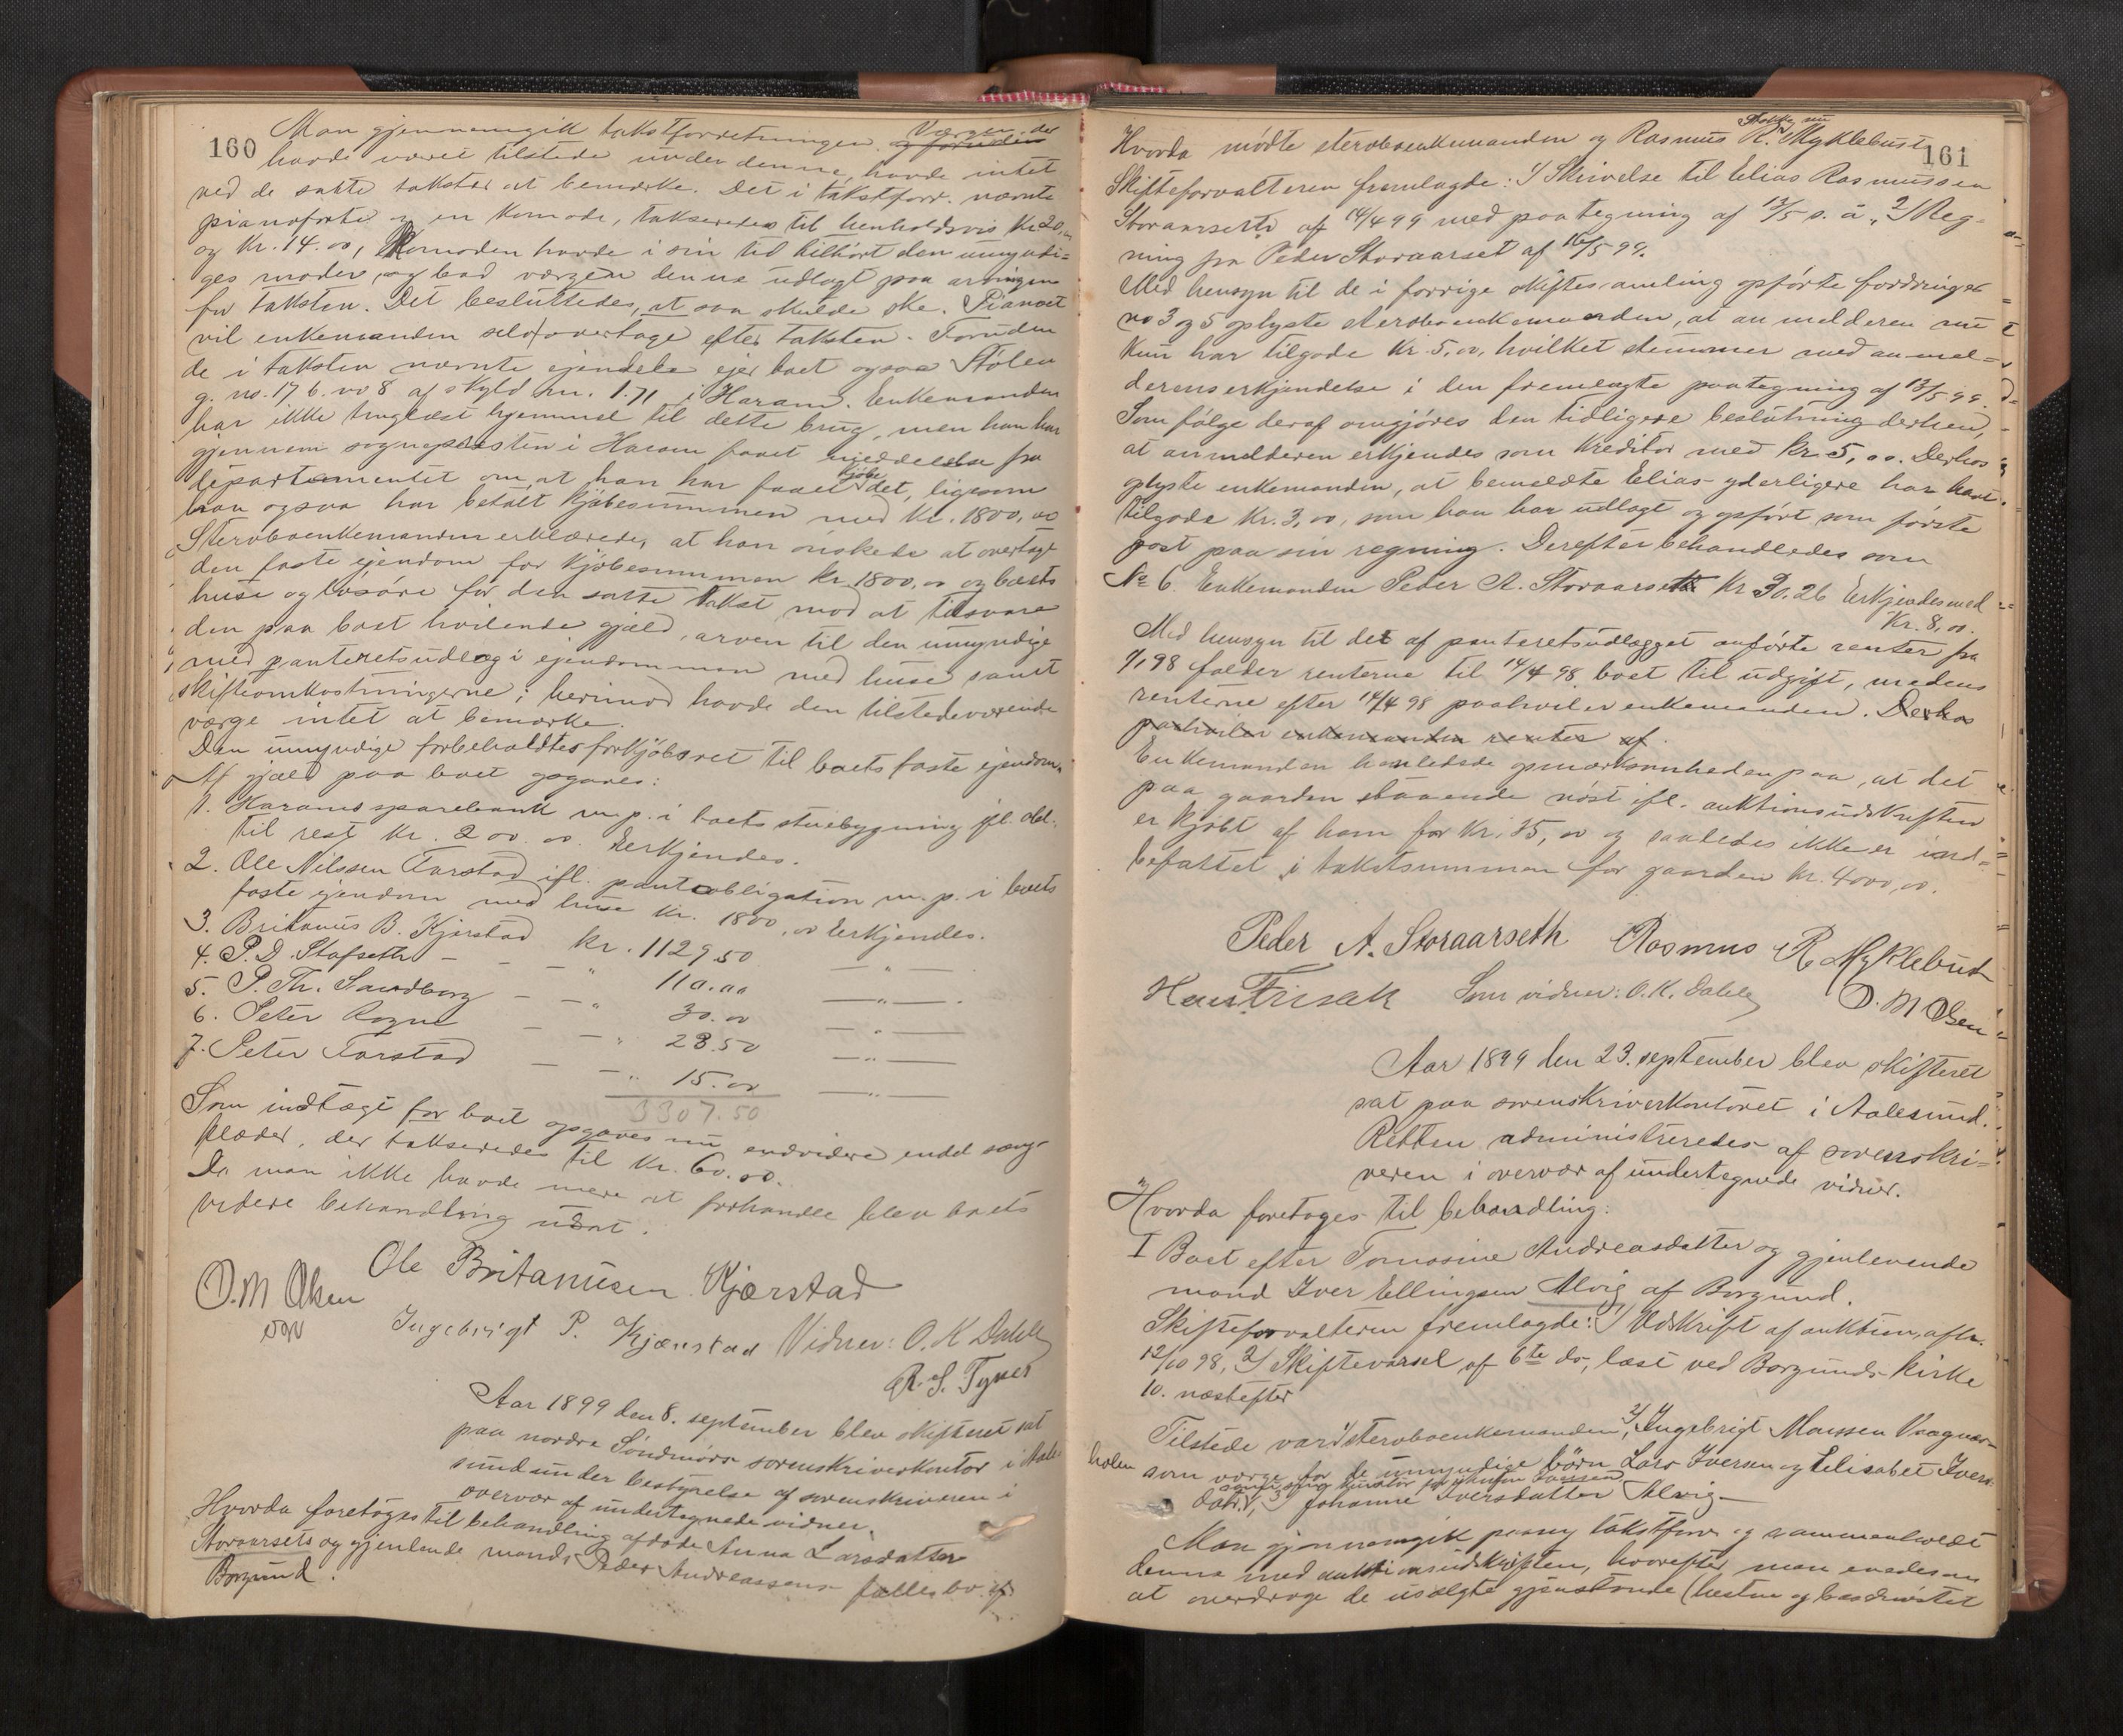 160
Man gjennemgik takstforretningen. Værgen, der
havde været tilstede under denne, havde intet
ved de satte takster at bemærke. Det i takstforr. nævnte
pianoforte og en komode, takseredes til henholdsvis Kr 20,00
og kr. 14.00, Komoden havde i sin tid tilhört den umyndi=
ges moder, og bad værgen denne udlagt paa arvingen
for taksten. Det besluttedes, at saa skulde ske. Pianoet
vil enkemanden selv overtage efter taksten. Foruden
de i taksten nævnte ejendele ejer boet ogsaa Stölen
g. no. 17, b. no 8 af skyld m. 1.71 i Haram. Enkemanden
har ikke tinglæst hjemmel til dette brug, men han har
gjennem sognepresten i Haram faaet meddelelse fra
departementet om, at han har faaet kjöbe det, ligesom
han ogsaa har betalt kjöbesummen med kr. 1800,00
Stervboenkemanden erklærede, at han önskede at overtage
den faste ejendom for kjöbesummen kr 1800,00 og boets
huse og lösöre for den satte takst mod at tilsvare
den paa boet hvilende gjæld, arven til den umyndige
med panteretsudlæg i ejendommen med huse samt
skifteomkostningerne; herimod havde den tilstedeværende
værge intet at bemærke.
Den umyndige forbeholdtes forkjöbsret til boets faste ejendom.
Af gjæld paa boet opgaves:
1. Harams sparebank m. p. i boets stuebygning ifl. obl.
til rest kr. 200.00. Erkjendes.
2. Ole Nilssen Farstad ifl. panteobligation m. p. i boets
faste ejendom med huse kr. 1800,00 Erkjendes.
3. Britanus B. Kjærstad kr. 1129.50 — " —
4. P. D. Stafseth — — " 110.00 — " —
5. P. Th. Sandborg — — " 30.00 — " —
6. Peter Rogne — — " 28.50 — " —
7. Peter Farstad — — " 15.00 — " —
3307.50
Som indtægt for boet opgaves nu endvidere endel seng-
klæder, der takseredes til kr. 60.00.
Da man ikke havde mere at forhandle blev boets
videre behandling udsat.
Ole Britanusen Kjærstad
O. M Olsen
Ingebrigt P. Kjærstad Vidner: O. K Dahle
R. S. Tynes
Aar 1899 den 8. september blev skifteret sat
paa nordre Söndmörs sorenskriverkontor i Aale=
sund under bestyrelse af sorenskriveren i
overvær af undertegnede vidner.
Hvorda foretoges til behandling afdöde Anna Larsdatter
Storaarsets og gjenlevende mands Peder Andreassens fællesbo af
Borgund.
161
Hvorda mödte stervboenkemanden og Rasmus R. Myklebust
Skifteforvalteren fremlagde: 1/ Skrivelse til Elias Rasmussen
Storaarseth af 14/4 99 med paategning af 13/5 s. å, 2/ Reg-
ning fra Peder Storaarset af 16/5 99.
Med hensyn til de i forrige skiftesamling opførte fordringer
no 3 og 5 oplyste stervboenkemanden, at anmelderen nu
kun har tilgode kr. 5,00, hvilket stemmer med anmel=
derens erkjendelse i den fremlagte paategning af 13/5 99.
Som fölge deraf omgjöres den tidligere beslutning derhen,
at anmelderen erkjendes som kreditor med kr. 5,00. Derhos
oplyste enkemanden, at bemeldte Elias yderligere har havt
tilgode kr. 3,00, som han har udlagt og opført som förste
post paa sin regning. Derefter behandledes som
No 6. Enkemanden Peder A. Storaarseth kr 30.26 Erkjendes med
kr. 8,00.
Med hensyn til det af panteretsudlægget anförte renter fra
1/1 98 falder renterne til 14/4 98 boet til udgift, medens
renterne efter 14/4 98 paahviler enkemanden. Derhos
paahviler enkemanden renter af
Enkemanden henledede opmærksomheden paa, at det
paa gaarden staaende nöst ifl. auktionsudskriften
er kjöbt af ham for kr. 35,00 og saaledes ikke er ind=
befattet i takstsummen for gaarden kr. 4000,00.
Peder A. Storaarseth Rasmus R Myklebust
Hans Frisak Som vidner: O. K. Dahle O. M Olsen
Aar 1899 den 23. september blev skifteret
sat paa sorenskriverkontoret i Aalesund.
Retten administreredes af sorenskri=
veren i overvær af undertegnede vidner.
Hvorda foretoges til behandling:
I Boet efter Tomasine Andreasdatter og gjenlevende
mand Iver Ellingsen Alvig af Borgund.
Skifteforvalteren fremlagde: 1/ Udskrift af auktion, afh.
12/10 98, 2/ Skiftevarsel af 6te ds, læst ved Borgunds kirke
10. næstefter
Tilstede var 1/ stervboenkemanden, 2/ Ingebrigt Monssen Vaagnes-
holen som værge for de umyndige börn Lars Iversen og Elisabet Ivers-
datr., 3/ Johanne Iversdatter Alvig.
Man gjennemgik paany takstforr. og sammenholdt
denne med auktionsudskriften, hvorefter man enedes om
at overdrage de usolgte gjenstande (hesten og